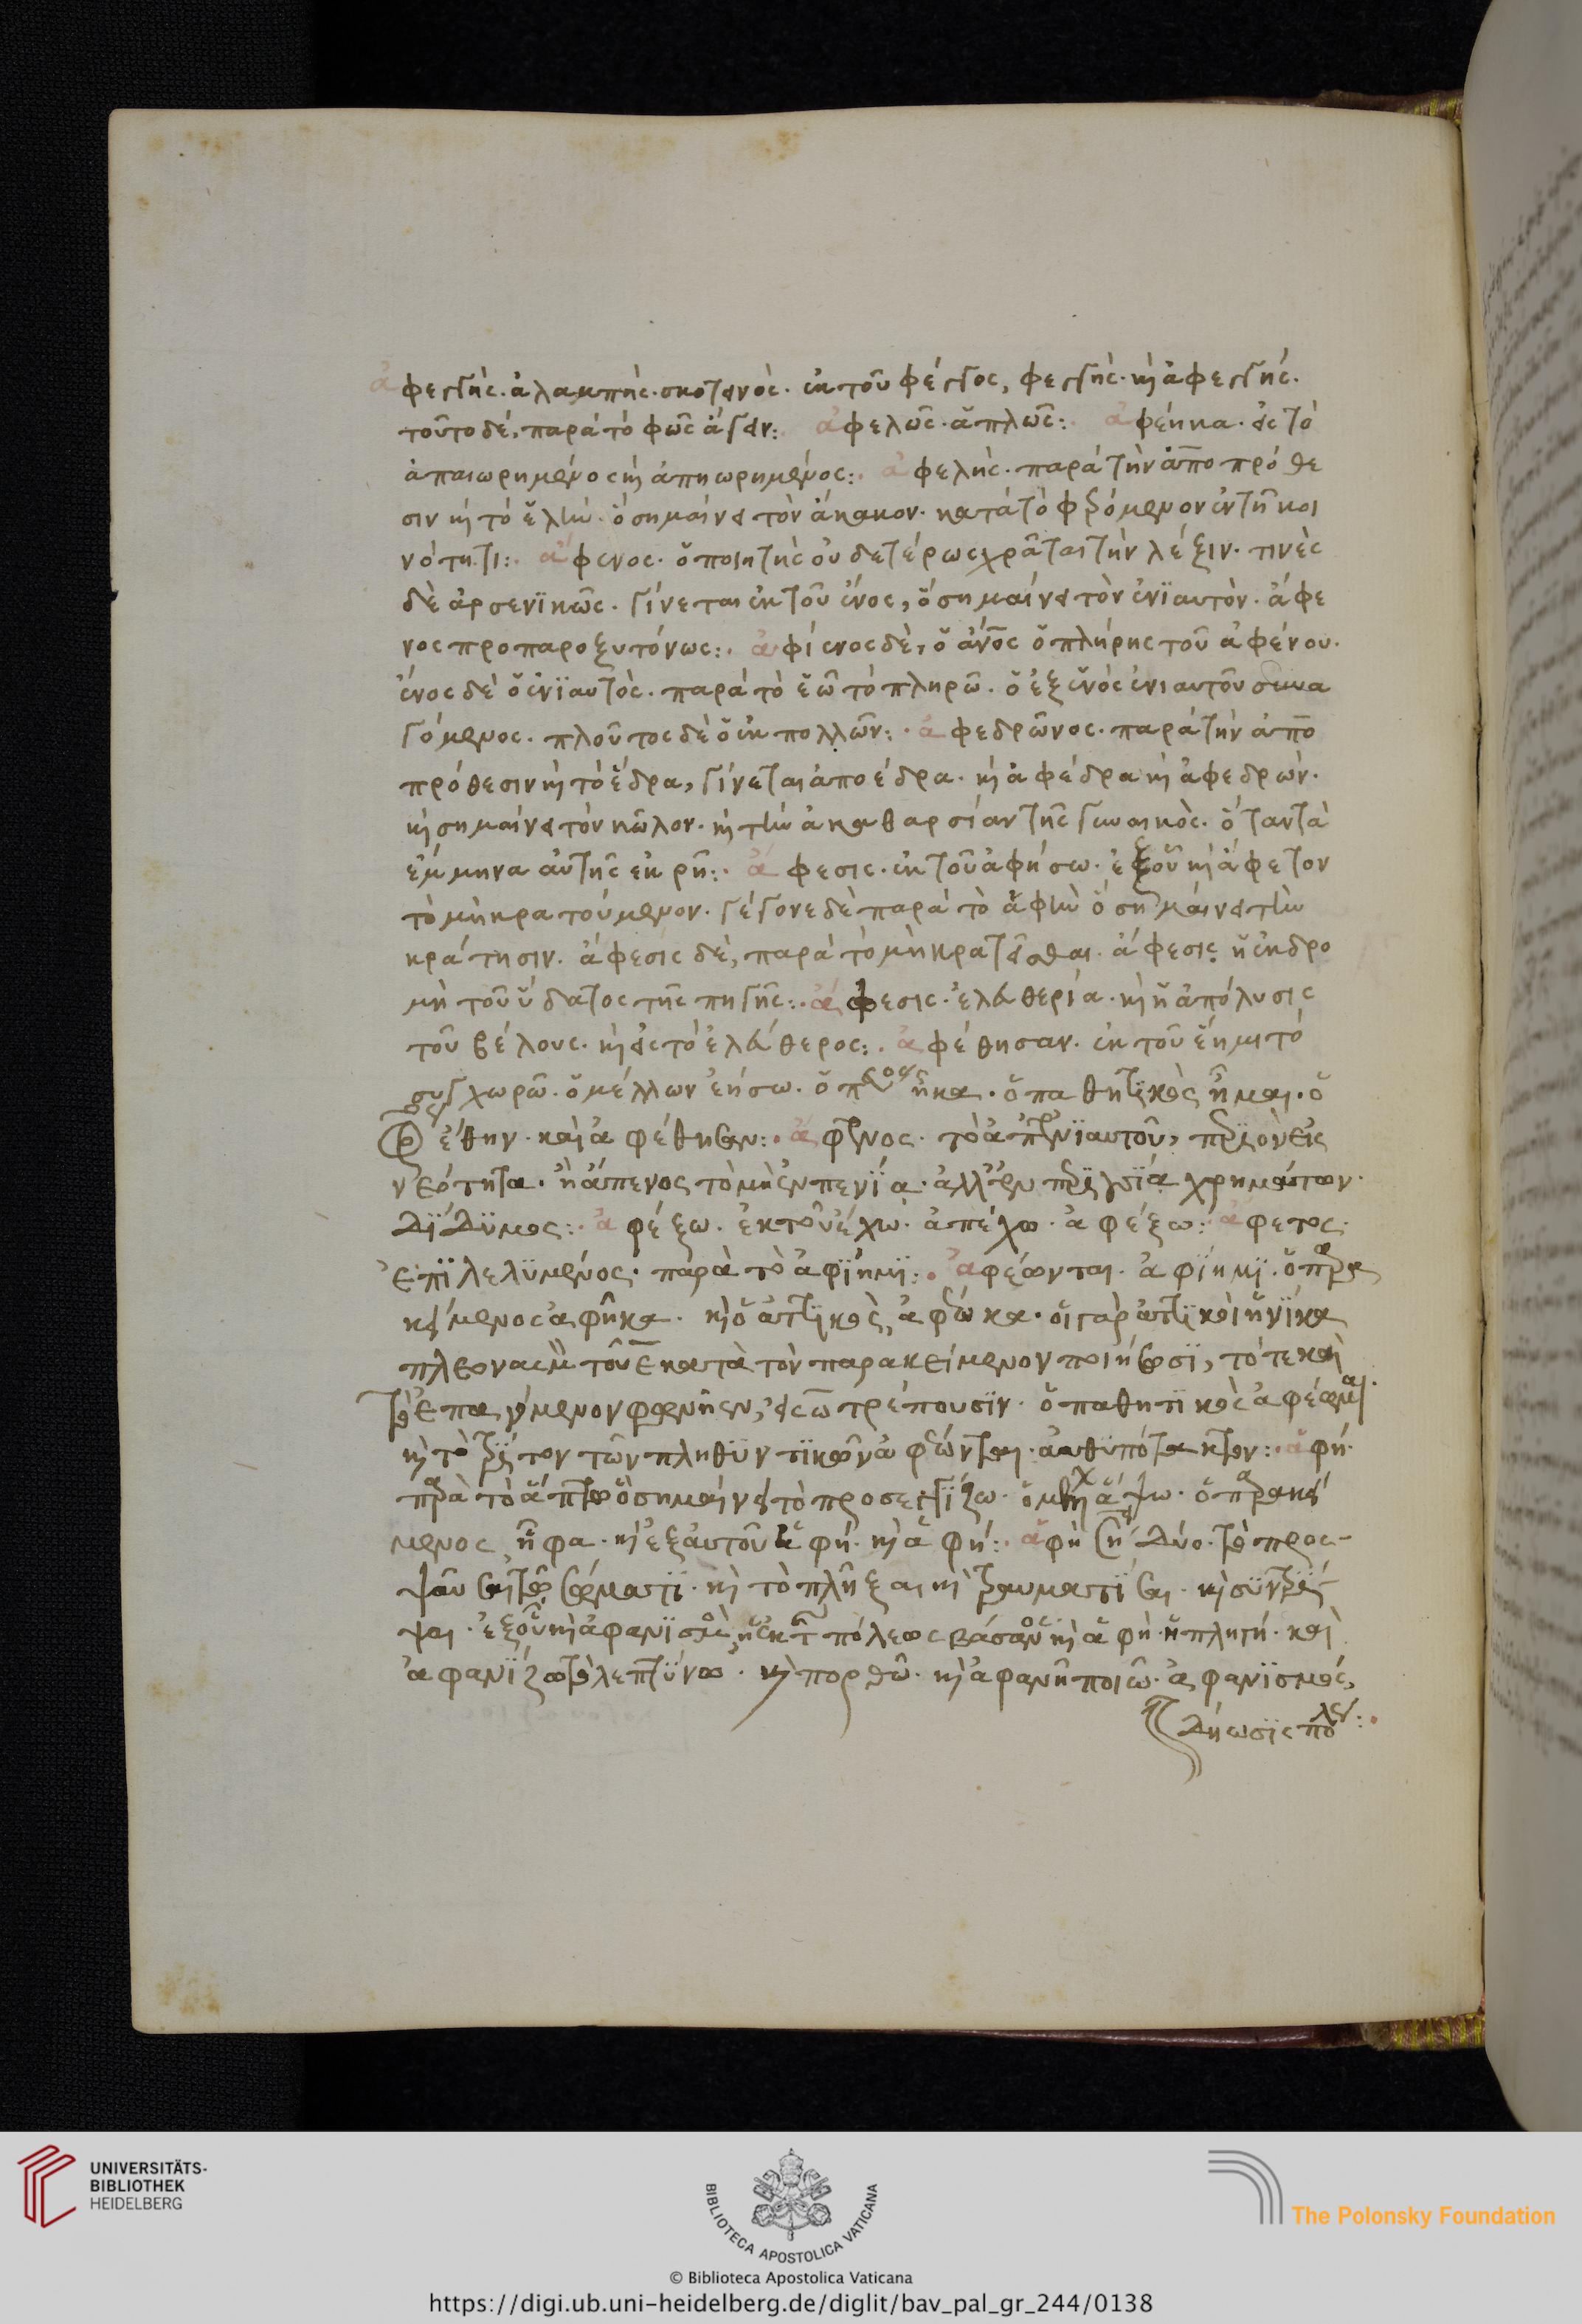 ἀφεγγὴς. ἀλαμπὴς. σκοτεινὸς. ἐκ τοῦ φέγγος, φεγγὴς. καὶ ἀφεγγής.
τοῦτο δὲ, παρὰ τὸ φῶς ἄγειν: ἀφελῶς. ἁπλῶς: ἀφέηκα. εἰς τὸ
ἀπαιωρημένος καὶ ἀπηωρημένος: ἀφελὴς. παρὰ τὴν ἀπο πρόθε
σιν καὶ τὸ ἕλω. ὃ σημαίνει τὸν ἄκακον. κατὰ τὸ φερόμενον ἐν τῇ κοι
νότητι: ἄφενος. ὁ ποιητὴς οὐδετέρως χρᾶται τὴν λέξιν. τινὲς
δὲ ἀρσενικῶς. γίνεται ἐκ τοῦ ἕνος, ὃ σημαίνει τὸν ἐνιαυτὸν. ἄφε
νος προπαροξυτόνως: ἀφίενος δὲ, ὁ ἄνος ὁ πλήρης τοῦ ἀφένου.
ἕνος δὲ ὁ ἐνιαυτὸς. παρὰ τὸ ἑῶ τὸ πληρῶ. ὁ ἐξ ἑνὸς ἐνιαυτοῦ συνα
γόμενος. πλοῦτος δὲ ὁ ἐκ πολλῶν: ἀφεδρῶνος. παρὰ τὴν ἀπο
πρόθεσιν καὶ τὸ ἕδρα, γίνεται ἀποέδρα. καὶ ἀφέδρα καὶ ἀφεδρών.
καὶ σημαίνει τὸν κῶλον. καὶ τὴν ἀκαθαρσίαν τῆς γυναικὸς. ὅταν τὰ
ἔμμηνα αὐτῆς ἐκρῇ: ἄφεσις. ἐκ τοῦ ἀφήσω. ἐξ οὗ καὶ ἄφετον
τὸ μὴ κρατούμενον. γέγονε δὲ παρὰ τὸ ἁφὴν ὃ σημαίνει τὴν
κράτησιν. ἄφεσις δὲ, παρὰ τὸ μὴ κρατεῖσθαι. ἄφεσις ἡ ἐκδρο
μὴ τοῦ ὕδατος τῆς πηγῆς: ἄφεσις. ἐλευθερία. καὶ ἡ ἀπόλυσις
τοῦ βέλους. καὶ εἰς τὸ ἐλεύθερος: ἀφέθησαν. ἐκ τοῦ ἕημι τὸ
συγχωρῶ. ὁ μέλλων ἑήσω. ἧκα. ὁ παθητικὸς ἧμαι. ὁ
ἕθην. καὶ ἀφέθησαν: νεότητα. ἢ ἄπενος τὸ μὴ ἐν πενία. χρημάτων.
Δίδυμος: ἀφέξω. ἐκ τοῦ ἔχω. ἀπέχω. ἀφέξω: ἄφετος.
ἐπιλελυμένος. παρὰ τὸ ἀφίημι: ἀφέωνται. ἀφίημι. ὁ παρα
κείμενος ἀφῆκα. καὶ ὁ ἀττικὸς, ἀφέωκα. οἱ γὰρ ἀττικοὶ ἡνίκα
πλεονασμὸν τοῦ ε κατὰ τὸν παρακείμενον ποιήσωσι, τότε καὶ
τὸ ἐπαγόμενον φωνῆεν, εἰς ω τρέπουσιν. ὁ παθητικὸς ἀφέωμαι.
καὶ τὸ τρίτον τῶν πληθυντικῶν ἀφέωνται. ἀνθυπότακτον: ἁφή.
παρὰ τὸ ἅπτω ὃ σημαίνει τὸ προσεγγίζω. ὁ μέλλων ἅψω. ὁ παρακεί
μενος ἧφα. καὶ ἐξ αὐτοῦ ἁφή. καὶ ἁφή: ἁφὴ δύο. τὸ προσ-
ψαῦσαι τῷ σώματι. καὶ τὸ πλῆξαι καὶ τραυματίσαι. καὶ συντρί-
ψαι. ἐξ οὗ καὶ ἀφανισμὸς πόλεως βάσανος καὶ ἁφὴ. ἡ πληγή. καὶ
ἀφανίζω τὸ λεπτύνω. καὶ πορθῶ. καὶ ἀφανῆ ποιῶ. ἀφανισμός,
δήωσις πόλεως:
UNIVERSITÄTS-
BIBLIOTHEK
HEIDELBERG
BIBLIOTECA APOSTOLICA VATICANA
The Polonsky Foundation
© Biblioteca Apostolica Vaticana
https://digi.ub.uni-heidelberg.de/diglit/bav_pal_gr_244/0138